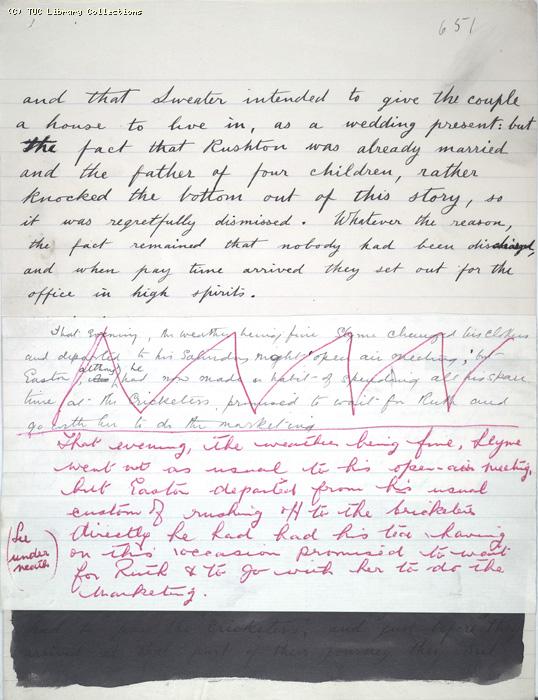 (C) TUC Library Collections
651
and that Sweater intended to give the couple
a house to live in, as a wedding present: but
the fact that Rushton was already married
and the father of four children, rather
knocked the bottom out of this story, so
it was regretfully dismissed. Whatever the reason,
the fact remained that nobody had been discharged,
and when pay time arrived they set out for the
office in high spirits.
That evening, the weather being fine Slyme changed his clothes
and departed to his Saturday night open air meeting; but
Easton, altho' he had now made a habit of spending all his spare
time at the Cricketers, promised to wait for Ruth and
go with her to do the marketing
That evening, the weather being fine, Slyme
went out as usual to his open-air meeting,
but Easton departed from his usual
custom of rushing off to the Cricketers
directly he had had his tea, having
on this occasion promised to wait
for Ruth & to go with her to do the
Marketing.
(See
under
neath)
Cricketers, and just before they
arrived at that part of their journey